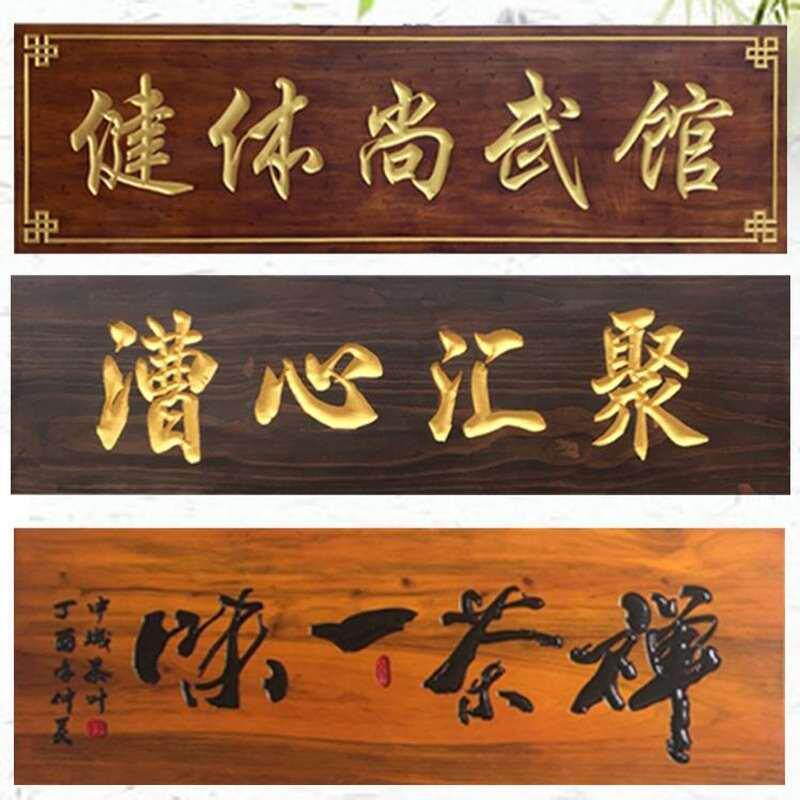 健体尚武馆
漕心汇聚
禅茶一味
中城茶叶
丁酉年仲夏